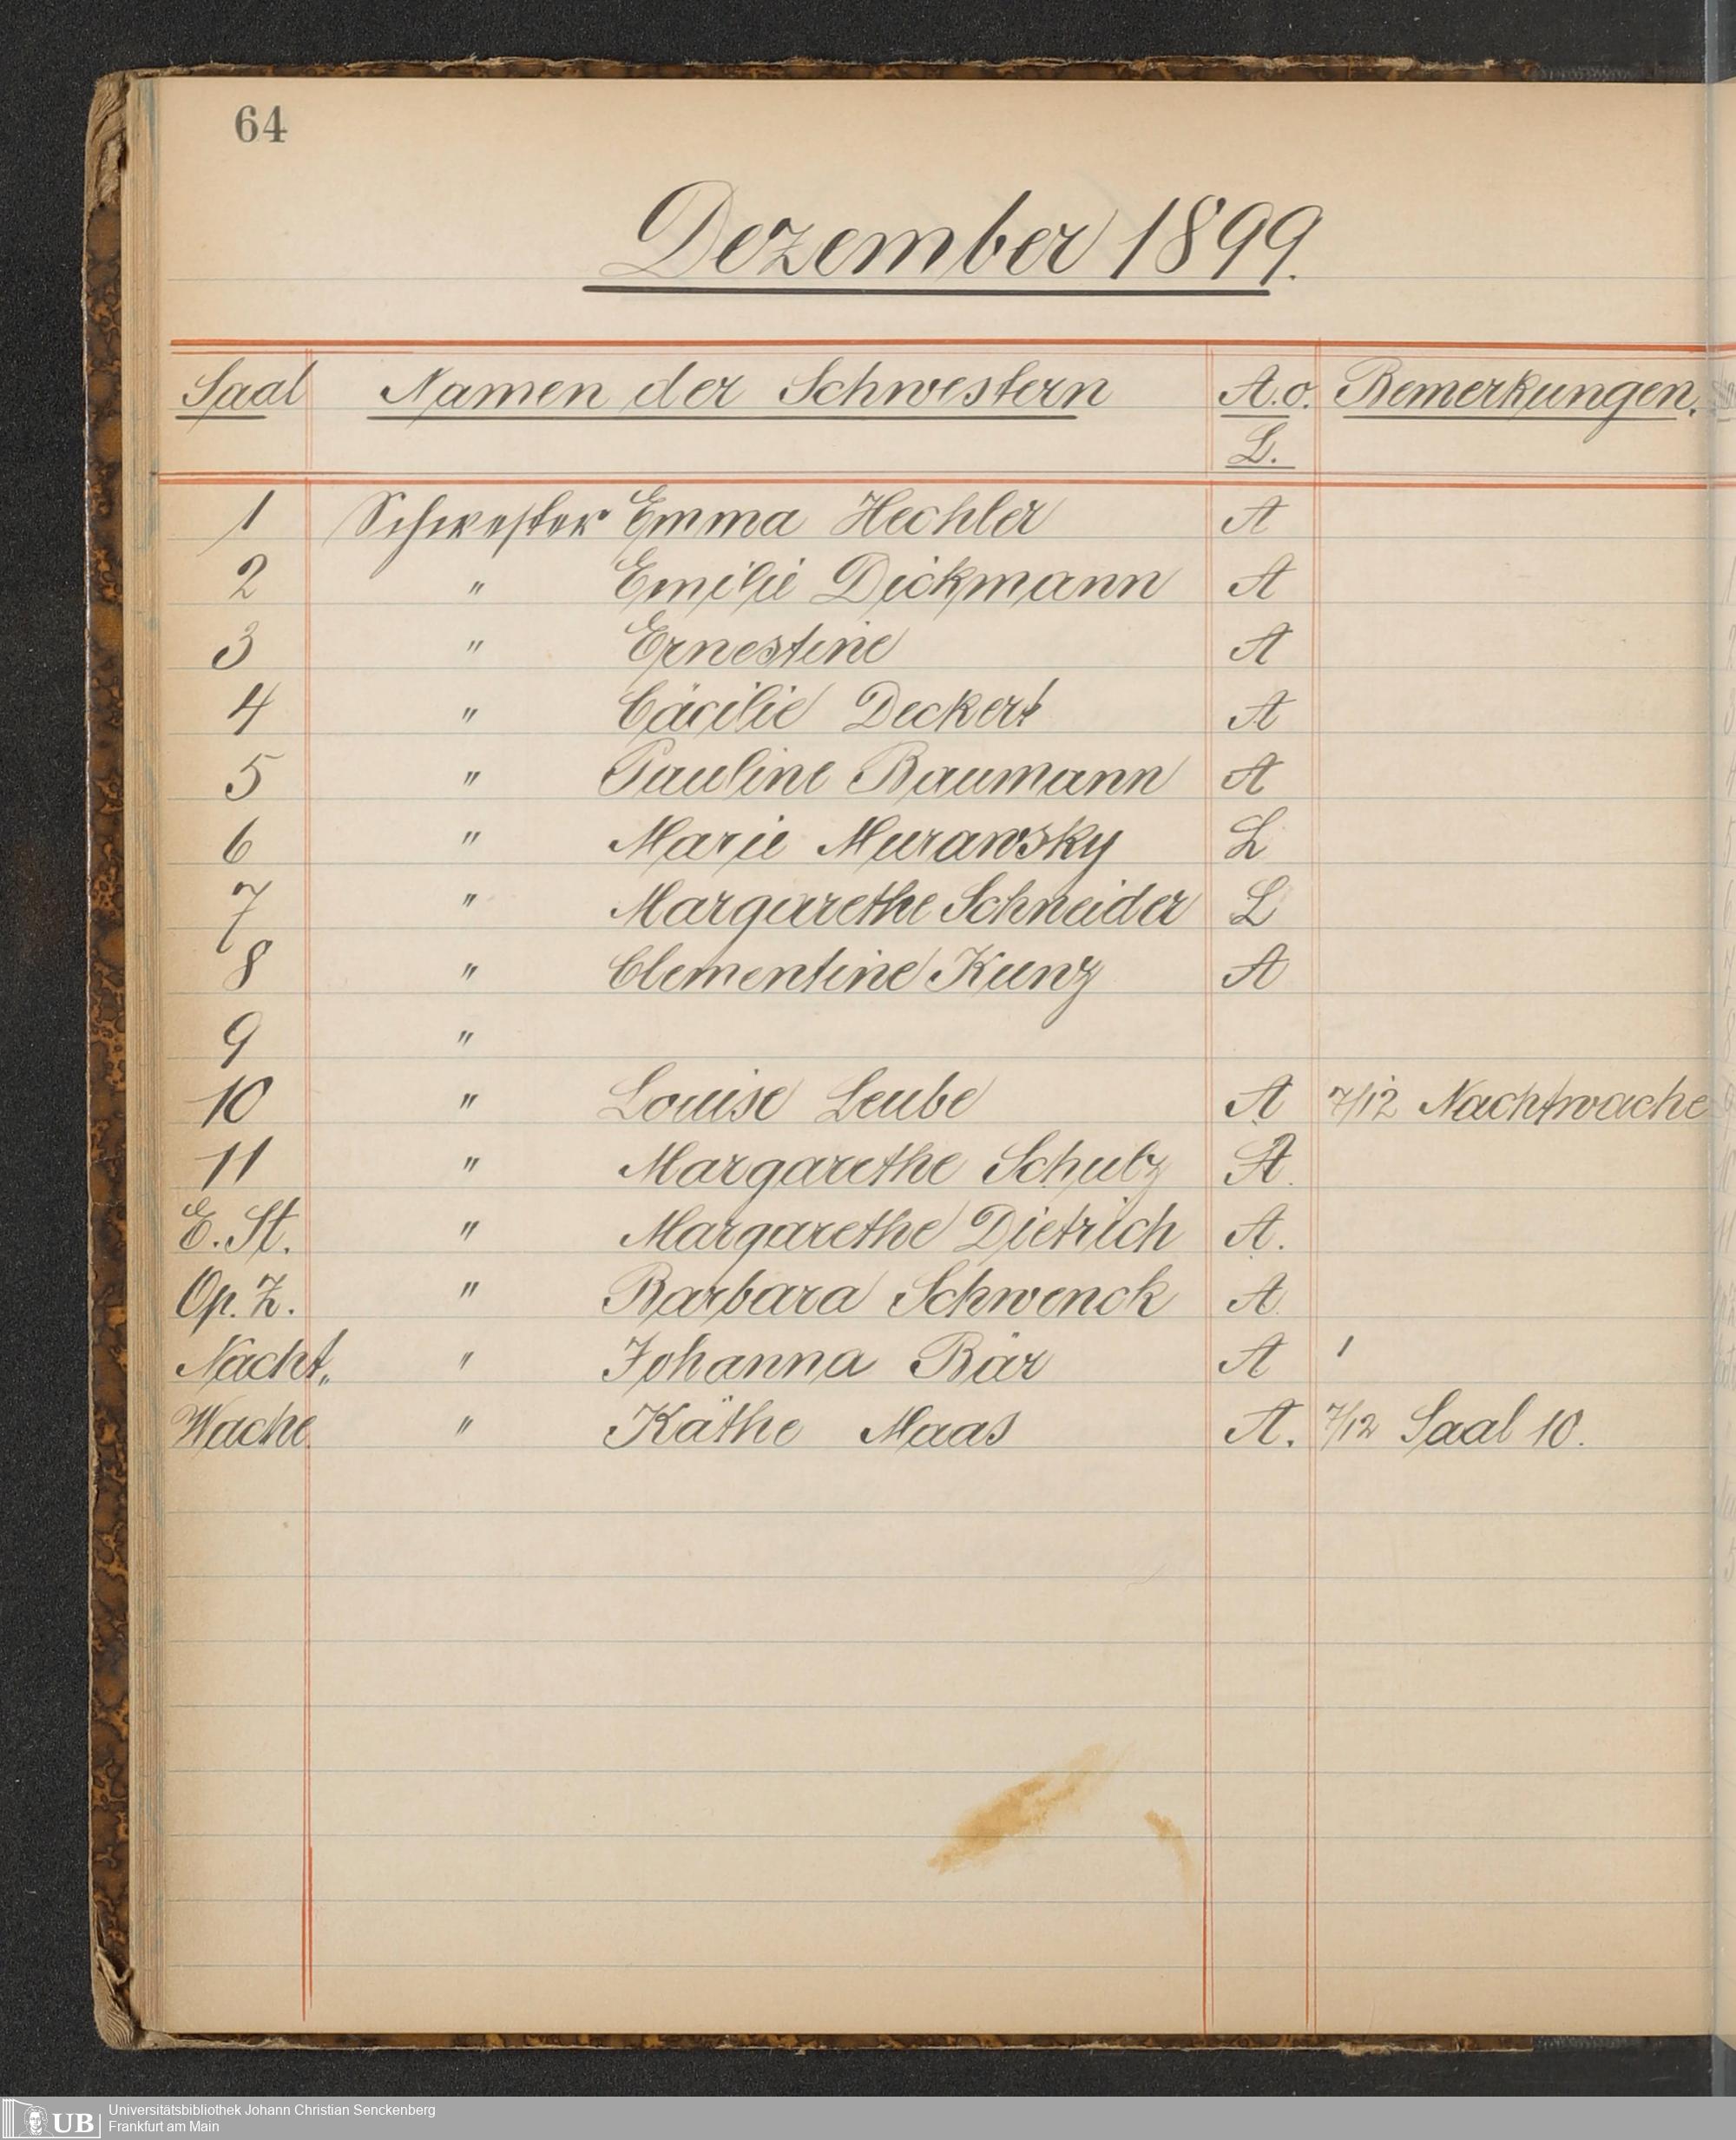 64
Dezember 1899.
Saal Namen der Schwestern A.o. Bemerkungen.
L.
1 Schwester Emma Hechler A
2 " Emilie Dickmann A
3 " Ernestine A
4 " Cäcilie Deckert A
5 " Pauline Baumann A
6 " Marie Murawsky L
7 " Margarethe Schneider L
8 " Clementine Kunz A
9 "
10 " Louise Leube A 7/12 Nachtwache
11 " Margarethe Schulz A.
E. St. " Margarethe Dietrich A.
Op. Z. " Barbara Schwenck A.
Nacht„ " Johanna Bär A
Wache " Käthe Maas A. 7/12 Saal 10.
UB Universitätsbibliothek Johann Christian Senckenberg
Frankfurt am Main